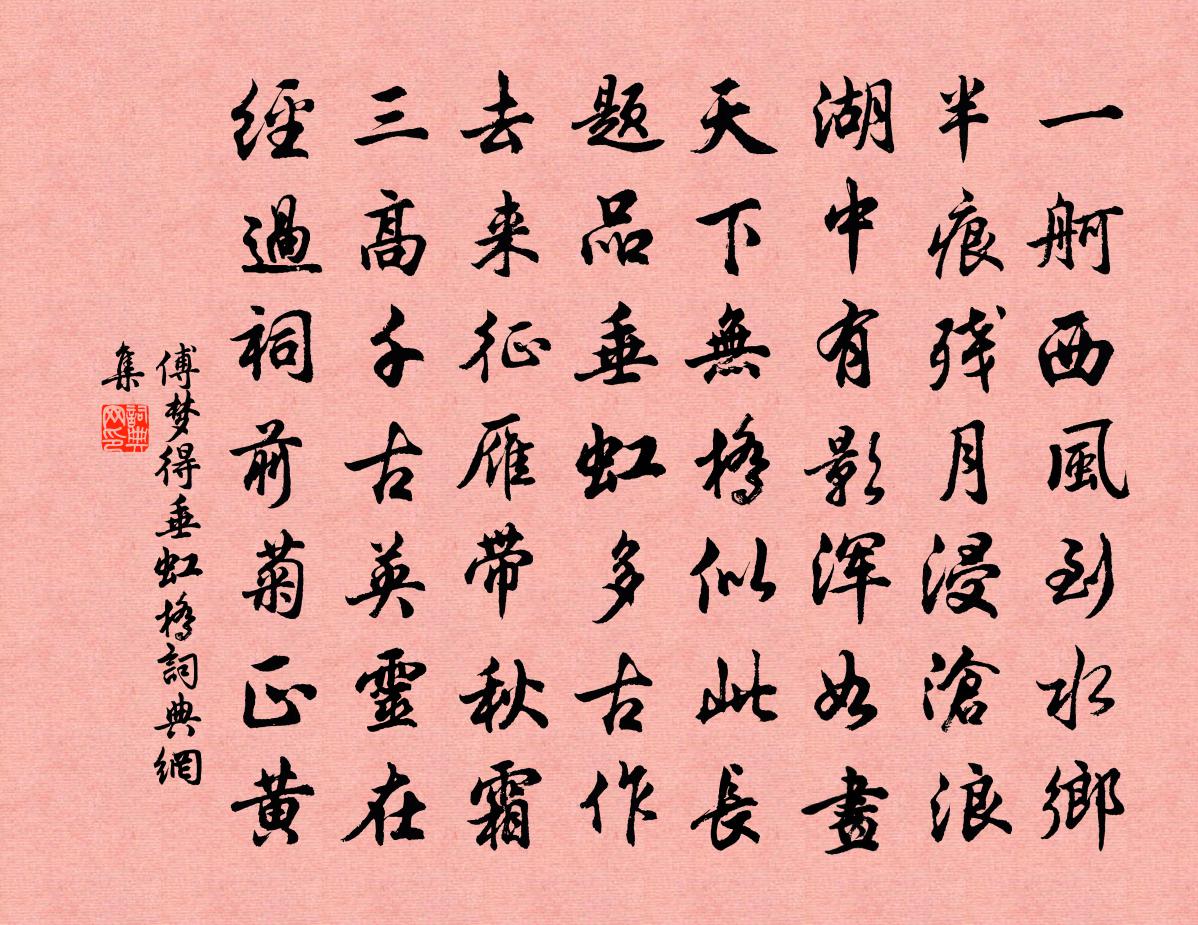 一舸西風到水鄉
半痕残月浸滄浪
湖中有影渾如畫
天下無橋似此長
题品垂虹多古作
去来征雁带秋霜
三高千古英靈在
經過祠前菊正黄
傅梦得垂虹橋詞典網
集
詞典網印